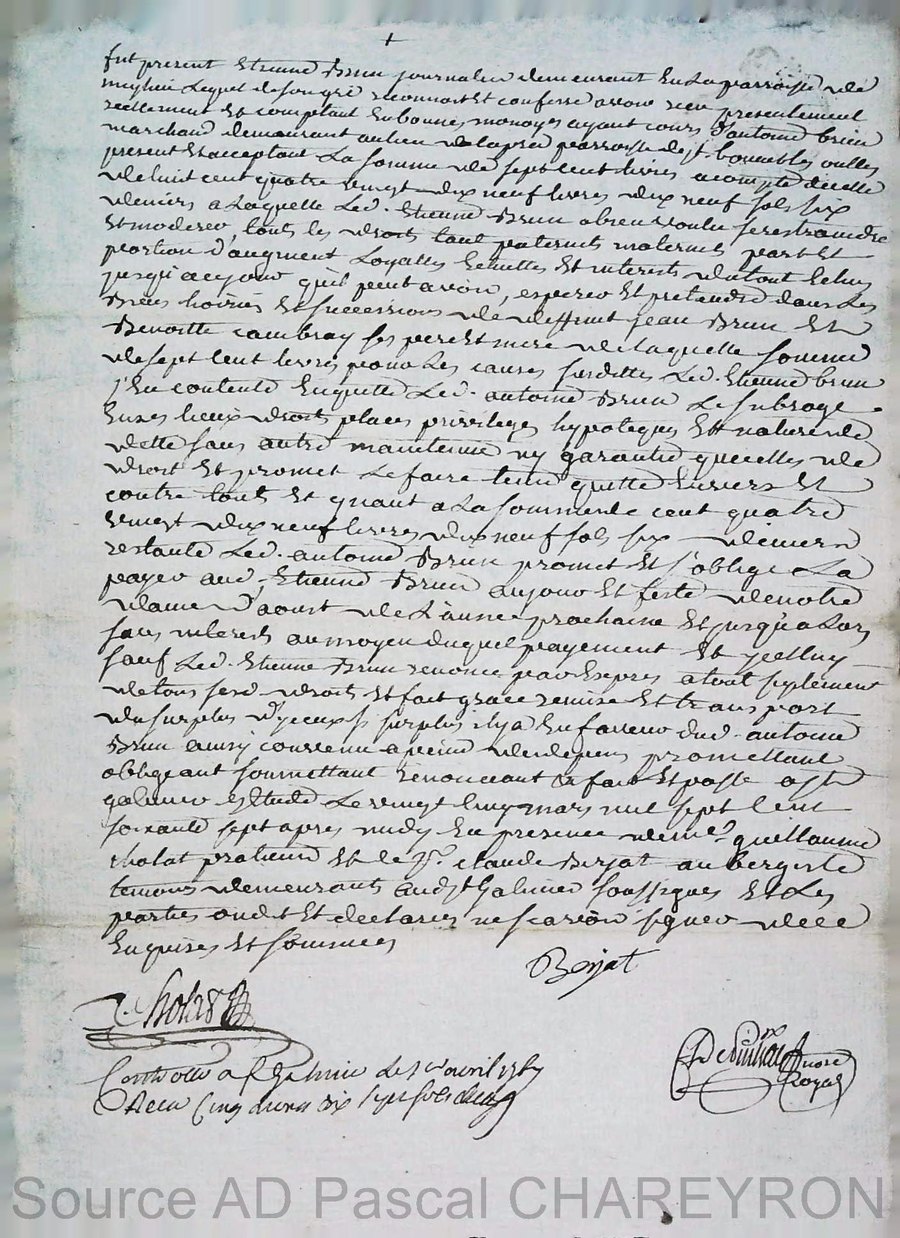 fut present Etienne Brun journalier demeurant En La parroisse de
lequel de son gré reconnoit Et confesse avoir recu presentement
reellement Et comptant En bonnes monoyes ayant cours d'antoine brun
marchand demeurant au lieu de lapra parroisse de st. bonnet les oulles
present Et acceptant La somme de sept cent livres a compte de celle
de huit cent quatre vingt dix neuf livres dix neuf sols six
deniers a Laquelle Led. Etienne Brun a bien voulu se restraindre
Et moderer, touts les droits tant paternels maternels part Et
portion d'augment Loyattes Echuttes Et interets du tout Echus
jusqu'a ce jour qu'il peut avoir, esperer Et pretendre dans Les
Biens hoiries Et successions de deffunt jean Brun Et
Benoitte cambray ses pere Et mere de laquelle somme
de sept cent livres pour Les causes susdittes Led. Etienne brun
s'En contente En quitte Led. antoine Brun Le subroge
En ses lieux droits places privileges hypoteques Et nature de
dette sans autre maintenue ny garantie que celles de
droit Et promet Le faire tenir quitte Envers Et
contre touts Et quant a La somme de cent quatre
vingt dix neuf livres dix neuf sols six deniers
restante Led. antoine Brun promet Et s'oblige La
payer aud. Etienne Brun au jour Et feste de notre
dame d'aoust de L'année prochaine Et jusqu'a Lors
sans interets au moyen duquel payement Et jcelluy
sauf Led. Etienne Brun renonce par Exprès a tout suplement
de tous sesd. droits Et fait grace remise Et transport
du surplus d'yceux sy surplus il y a En faveur dud. antoine
Brun ainsy convenu a peine de depens promettant
obligeant soumettant renonceant &a fait Et passé a st
galmier Etude Le vingt cinq mars mil sept cent
soixante sept apres midy En presence de me. guillaume
cholat praticien Et de sr. claude Berjat aubergiste
temoins demeurants aud. st Galmier soussignes Et Les
parties ont Et declarés ne scavoir signer de ce
Enquises Et sommées
Berjat
Cholat
notre
Royal
Controllé a st Galmier Le avril 1767
Recu Cinq livres dix sept sols
Source AD Pascal CHAREYRON